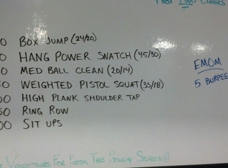 0 BOX JUMP (24/20)
0 HANG POWER SNATCH (45/30)
0 MED BALL CLEAN (20/14)
0 WEIGHTED PISTOL SQUAT (35/18)
00 HIGH PLANK SHOULDER TAP
0 RING ROW
00 SIT UPS
EMOM
5 BURPEE
FOR